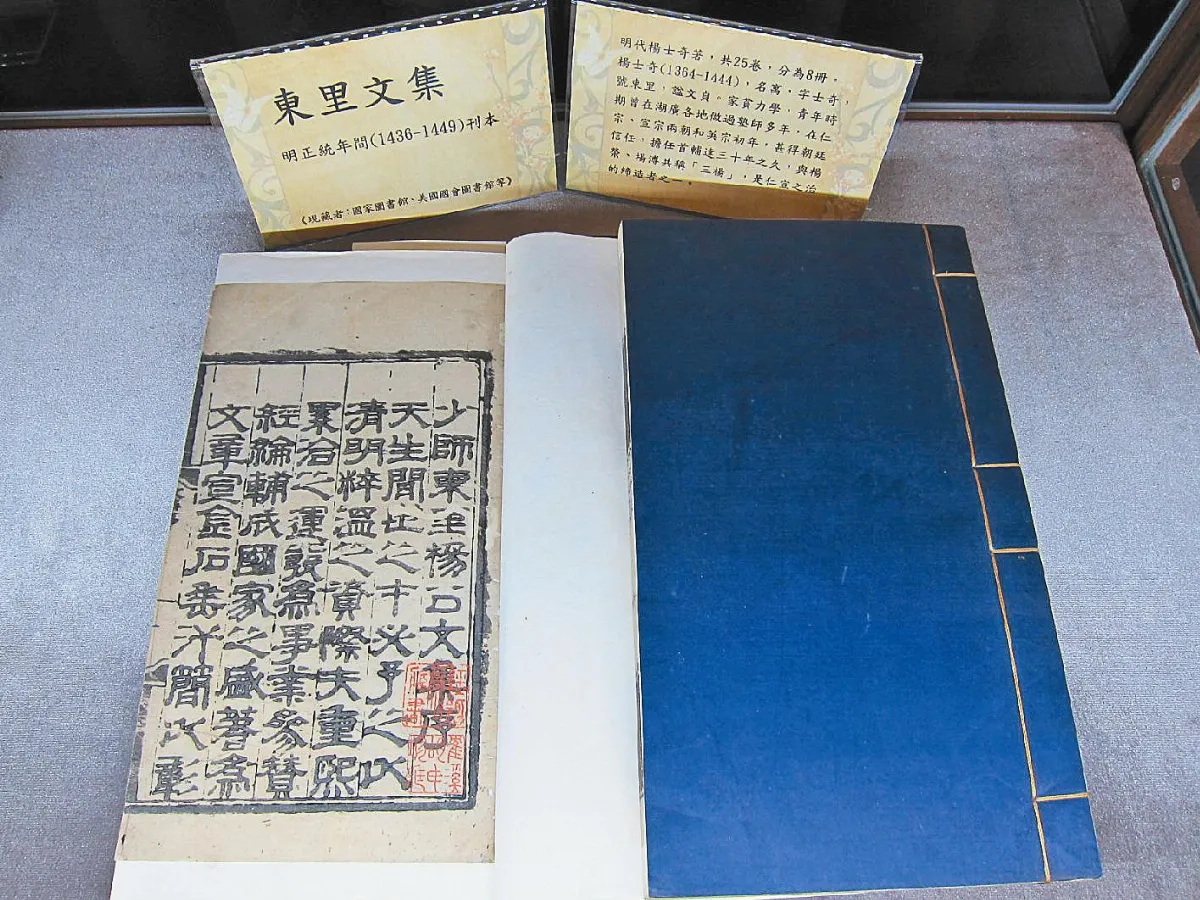 東里文集
明正統年間(1436-1449)刊本
《現藏者：國家圖書館、美國國會圖書館等》
明代楊士奇著，共25卷，分為8冊。
楊士奇(1364-1444)，名寓，字士奇，
號東里，謚文貞。家貧力學，青年時
期曾在湖廣各地做過塾師多年，在仁
宗、宣宗兩朝和英宗初年，甚得朝廷
信任，擔任首輔達三十年之久，與楊
榮、場溥共稱「三楊」，是仁宣之治
的締造者之一。
少師東里楊公文集序
天生間世之才必予之以
清明粹溫之資際夫重熙
累洽之運發為事業參贊
經綸輔成國家之盛著為
文章宣金石垂汗簡以彰